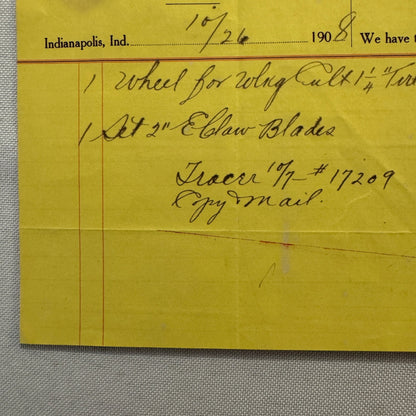 Indianapolis, Ind. 10/26 1908 We have t
1 Wheel for Wlng Cult 1 1/4" Tire
1 Set 2" E Claw Blades
Tracer 10/7 - # 17209
Copy Mail.